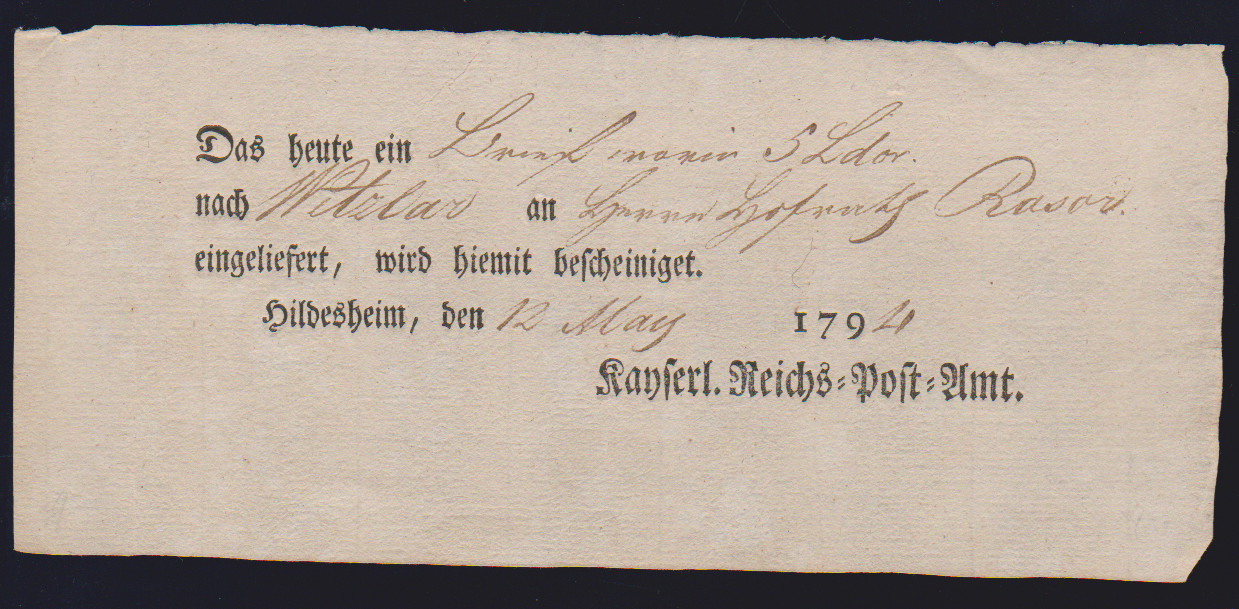 Das heute ein Brief worin 5 Ldor.
nach Wetzlar an Herrn Hofrath Rasor.
eingeliefert, wird hiemit bescheiniget.
Hildesheim, den 12 May 1794
Kayserl. Reichs-Post-Amt.